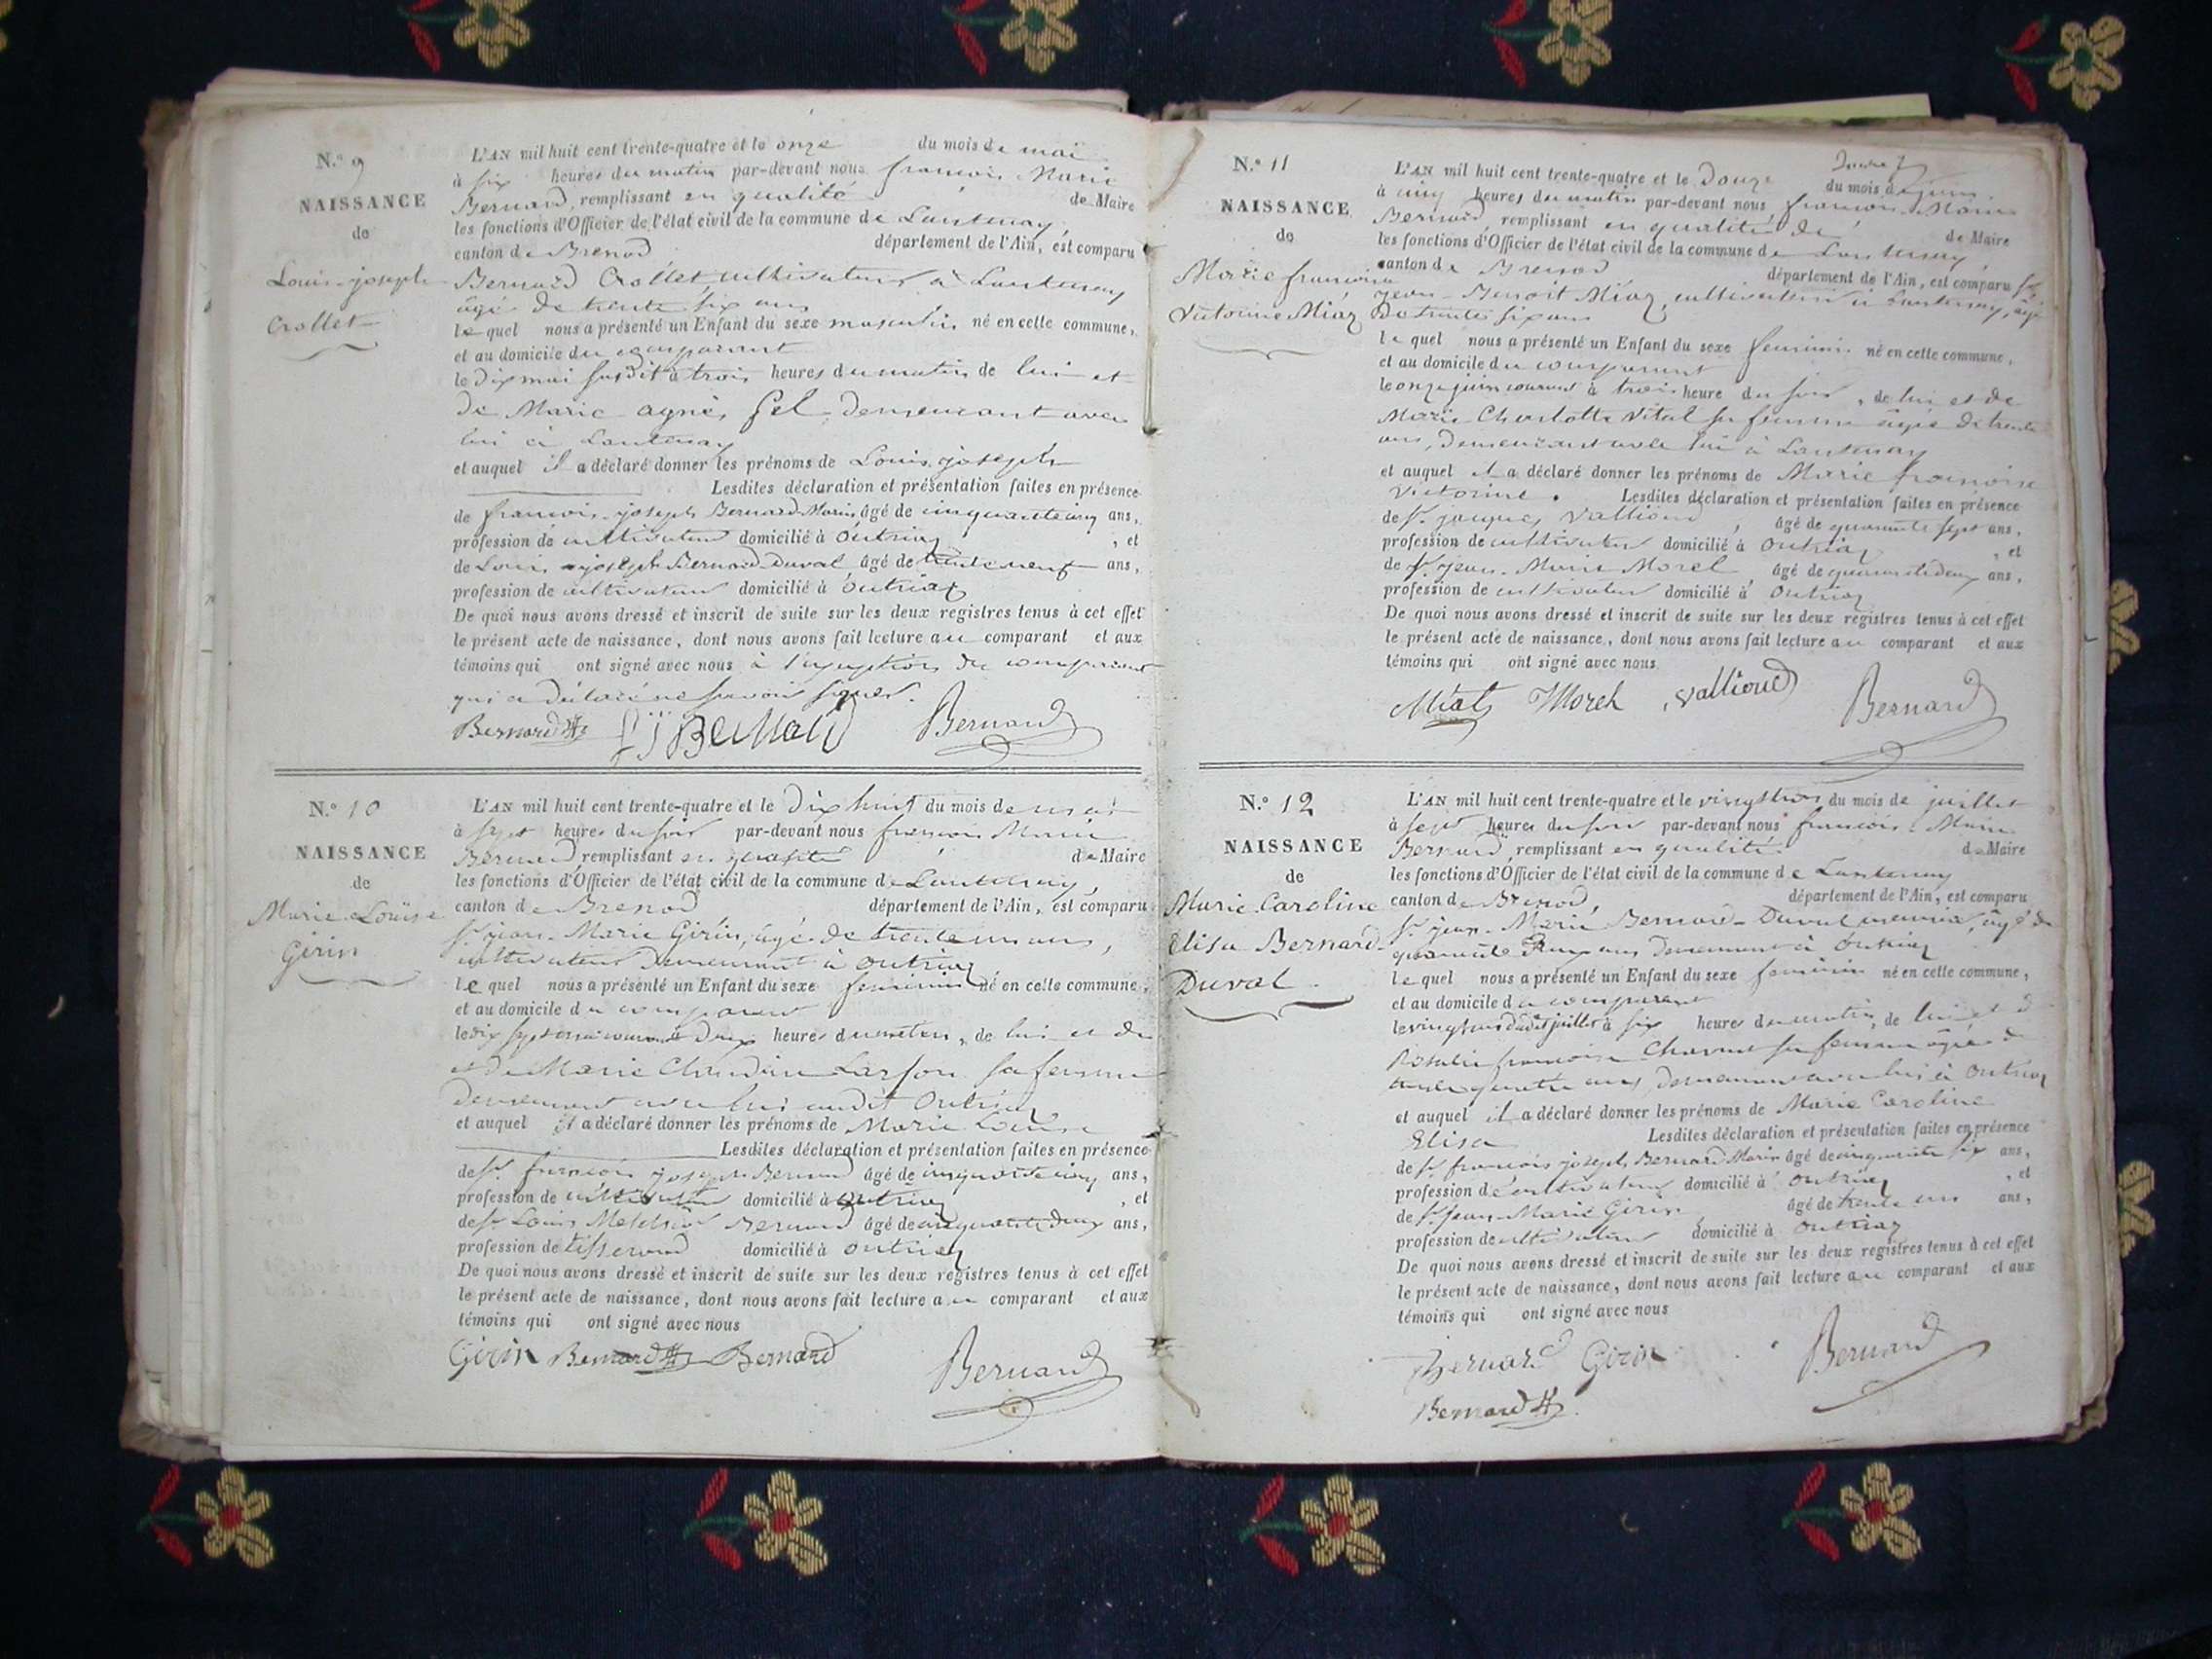 N.° 9
NAISSANCE
de
Louis-joseph
Crollet
L'AN mil huit cent trente-quatre et le onze du mois de mai
à six heures du matin par-devant nous francois Marie
Bernard, remplissant en qualité de Maire
les fonctions d'Officier de l'état civil de la commune de Lantenay,
canton de Brenod département de l'Ain, est comparu
Bernard Crollet cultivateur à Lantenay
âgé de trente six ans
lequel nous a présenté un Enfant du sexe masculin né en cette commune,
et au domicile du comparant
le dix mai susdit à trois heures du matin de lui et
de Marie agnès demeurant avec
lui à Lantenay
et auquel il a déclaré donner les prénoms de Louis joseph
Lesdites déclaration et présentation faites en présence
de francois joseph Bernard Marin âgé de cinquante cinq ans,
profession de cultivateur domicilié à Outriaz, et
de Louis joseph Bernard Duval âgé de trente neuf ans,
profession de cultivateur domicilié à outriaz
De quoi nous avons dressé et inscrit de suite sur les deux registres tenus à cet effet
le présent acte de naissance, dont nous avons fait lecture au comparant et aux
témoins qui ont signé avec nous à l'exception du comparant
qui a déclaré ne savoir signer.
Bernard Bernard Bernard
N.° 10
NAISSANCE
de
Marie Louise
Girin
L'AN mil huit cent trente-quatre et le Dix huit du mois de mai
à sept heures du soir par-devant nous francois Marie
Bernard remplissant en qualité de Maire
les fonctions d'Officier de l'état civil de la commune de Lantenay,
canton de Brenod département de l'Ain, est comparu
Sr jean-Marie Girin, âgé de trente un ans,
cultivateur demeurant à outriaz
lequel nous a présenté un Enfant du sexe feminin né en cette commune,
et au domicile du comparant
le dix sept mai courant à deux heures du matin, de lui et de
et de Marie Claudine sa femme
demeurant avec lui audit Outriaz
et auquel il a déclaré donner les prénoms de Marie Louise
Lesdites déclaration et présentation faites en présence
de Sr francois joseph Bernard âgé de cinquante cinq ans,
profession de cultivateur domicilié à outriaz, et
de Sr Louis Bernard âgé de cinquante deux ans,
profession de tisserand domicilié à outriaz
De quoi nous avons dressé et inscrit de suite sur les deux registres tenus à cet effet
le présent acte de naissance, dont nous avons fait lecture au comparant et aux
témoins qui ont signé avec nous
Girin Bernard Bernard Bernard
N.° 11
NAISSANCE
de
Marie francoise
Victorine Miaz
L'AN mil huit cent trente-quatre et le Douze du mois de juin
à cinq heures du matin par-devant nous francois-Marie
Bernard, remplissant en qualité de de Maire
les fonctions d'Officier de l'état civil de la commune de Lantenay
canton de Brenod département de l'Ain, est comparu Sr
jean-Benoit Miaz, cultivateur à Lantenay, âgé
de trente six ans
lequel nous a présenté un Enfant du sexe feminin né en cette commune,
et au domicile du comparant
le onze juin courant à trois heure du soir, de lui et de
Marie Charlotte Vital sa femme âgée de trente
ans, demeurant avec lui à Lantenay
et auquel il a déclaré donner les prénoms de Marie francoise
Victorine. Lesdites déclaration et présentation faites en présence
de Sr jacques Vallioud, âgé de quarante sept ans,
profession de cultivateur domicilié à Outriaz, et
de Sr jean-Marie Morel âgé de quarante deux ans,
profession de cultivateur domicilié à outriaz
De quoi nous avons dressé et inscrit de suite sur les deux registres tenus à cet effet
le présent acte de naissance, dont nous avons fait lecture au comparant et aux
témoins qui ont signé avec nous.
Miaz Morel Vallioud Bernard
N.° 12
NAISSANCE
de
Marie Caroline
Elisa Bernard-
Duval
L'AN mil huit cent trente-quatre et le vingt trois du mois de juillet
à sept heures du soir par-devant nous francois-Marie
Bernard, remplissant en qualité de Maire
les fonctions d'Officier de l'état civil de la commune de Lantenay
canton de Brenod, département de l'Ain, est comparu
Sr jean-Marie Bernard-Duval meunier, âgé de
quarante deux ans demeurant à outriaz
lequel nous a présenté un Enfant du sexe feminin né en cette commune,
et au domicile du comparant
le vingt trois dudit juillet à six heures du matin, de lui et de
Rosalie francoise sa femme âgée de
trente quatre ans, demeurant avec lui à outriaz
et auquel il a déclaré donner les prénoms de Marie Caroline
Elisa Lesdites déclaration et présentation faites en présence
de Sr francois joseph Bernard Marin âgé de cinquante six ans,
profession de cultivateur domicilié à Outriaz, et
de Sr jean-Marie Girin âgé de trente un ans,
profession de cultivateur domicilié à outriaz
De quoi nous avons dressé et inscrit de suite sur les deux registres tenus à cet effet
le présent acte de naissance, dont nous avons fait lecture au comparant et aux
témoins qui ont signé avec nous
Bernard Girin Bernard
Bernard